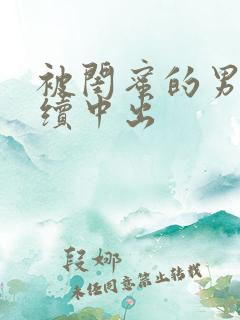 被閨蜜的男
續中出
段娜
未经同意禁止转载